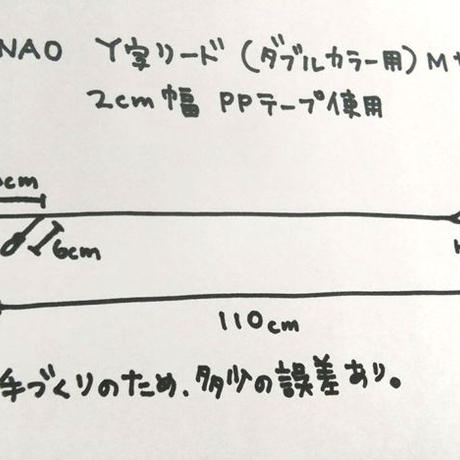 NAO Y字リード(ダブルカラー用)M
2cm幅 PPテープ使用
cm
6cm
110cm
手づくりのため、多少の誤差あり。